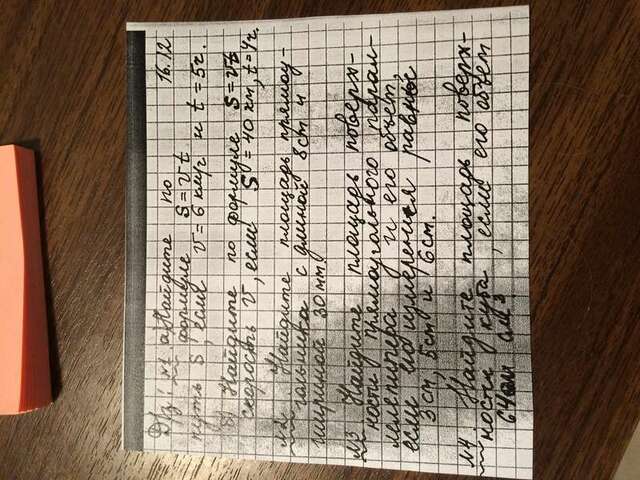 Д/з: №1 а Найдите по 16.12
формуле S = vt
путь S, если v = 6 км/ч и t = 5ч.
б) Найдите по формуле S=vt
скорость v, если S = 40 км, t=4ч.
№2 Найдите площадь прямоу-
гольника с длиной 8cm и
шириной 30 мм.
№3 Найдите площадь поверх-
ности прямоугольного парал-
лелепипера и его объем,
если его измерения равны
3cm, 5cm и 6cm.
№4. Найдите площадь поверх-
ности куба, если его объем
64 см³.